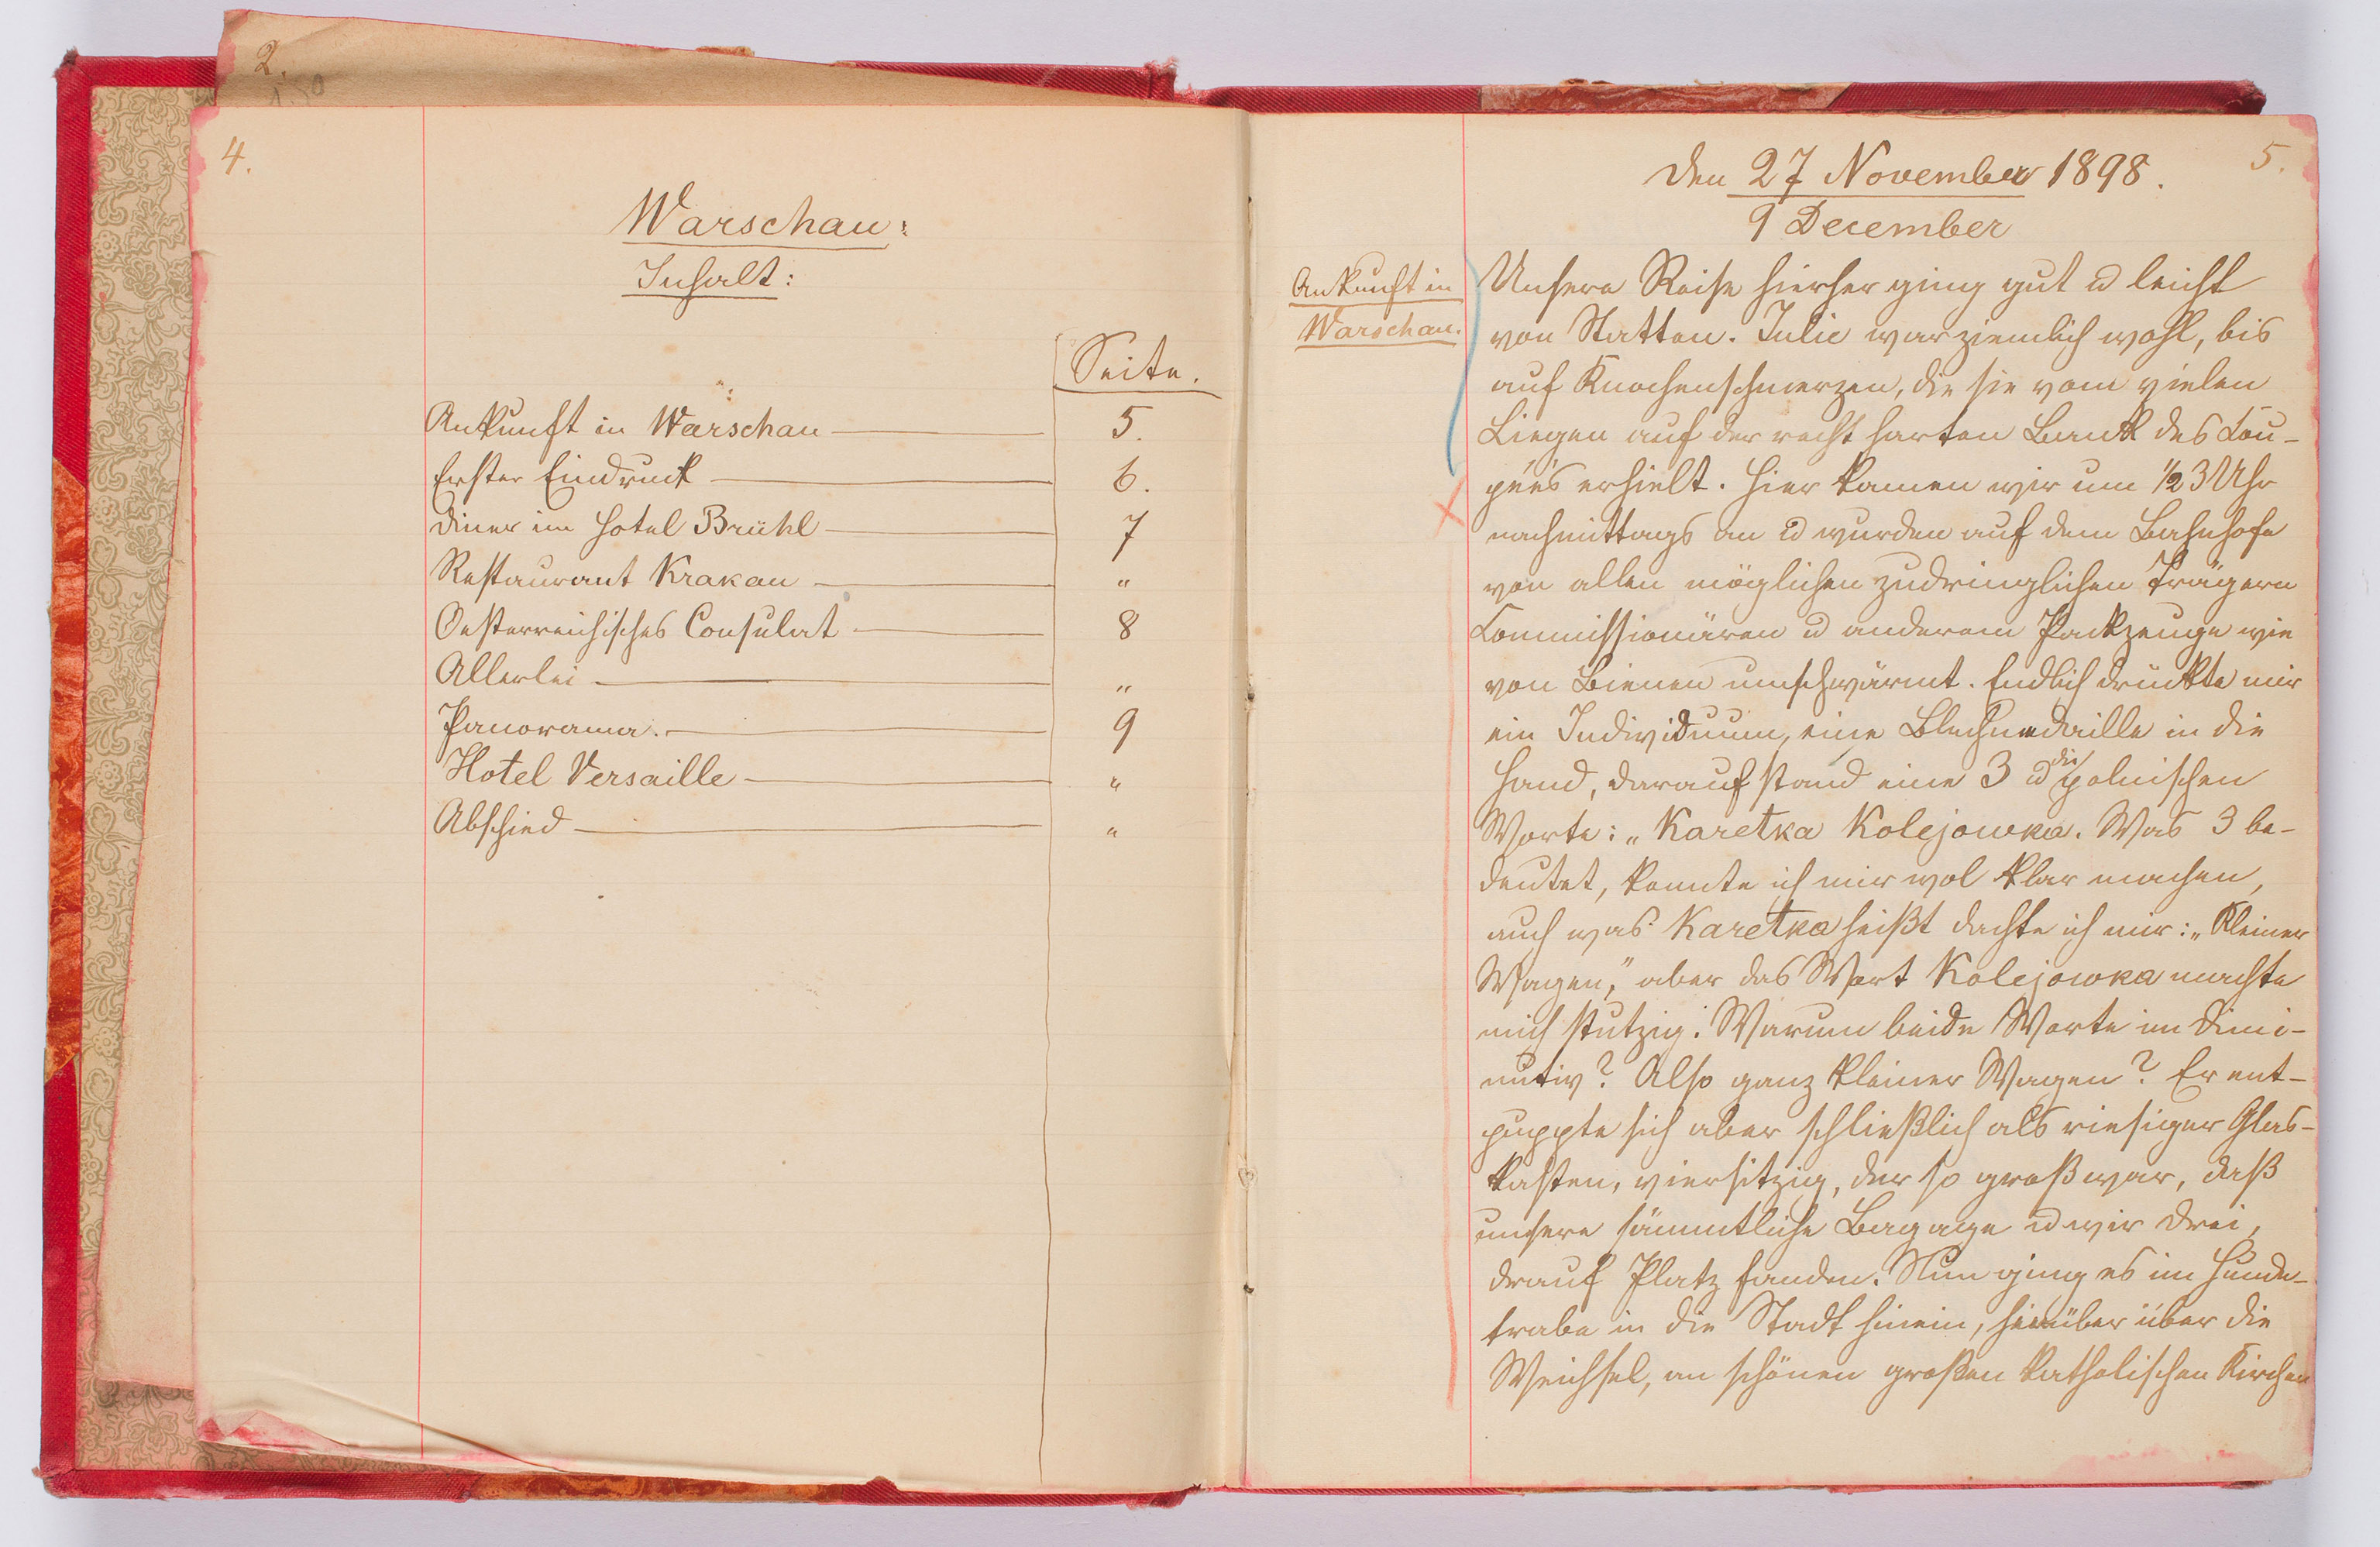 2.
4.
Warschau:
Inhalt:
Seite.
Ankunft in Warschau 5.
Erster Eindruck 6.
Diner im Hotel Brühl 7
Restaurant Krakau "
Oesterreichisches Consulat 8
Allerlei "
Panorama. 9
Hotel Versaille "
Abschied "
5.
Den 27 November 1898.
9 December
Ankunft in
Warschau.
Unsere Reise hierher ging gut u leicht
von Statten. Julie war ziemlich wohl, bis
auf Knochenschmerzen, die sie vom vielen
Liegen auf der recht harten Bank des Cou-
péés erhielt. Hier kamen wir um ½ 3 Uhr
nachmittags an u wurden auf dem Bahnhofe
von allen möglichen zudringlichen Trägern
Commissionären u anderem Packzeuge wie
von Bienen umschwärmt. Endlich drückte mir
ein Individuum, eine Blechmedaille in die
Hand, darauf stand eine 3 u die polnischen
Worte: „Karetka Kolejowka. Was 3 be-
deutet, konnte ich mir wol klar machen,
auch was Karetka heißt dachte ich mir: „Kleiner
Wagen," aber das Wort Kolejowka machte
mich stutzig. Warum beide Worte im Dimi-
nutiv? Also ganz kleiner Wagen? Er ent-
puppte sich aber schließlich als riesiger Glas-
kasten, viersitzig, der so groß war, daß
unsere sämmtliche Bagage u wir drei,
drauf Platz fanden. Nun ging es im Hunde-
trabe in die Stadt hinein, hinüber über die
Weichsel, an schönen großen katholischen Kirchen